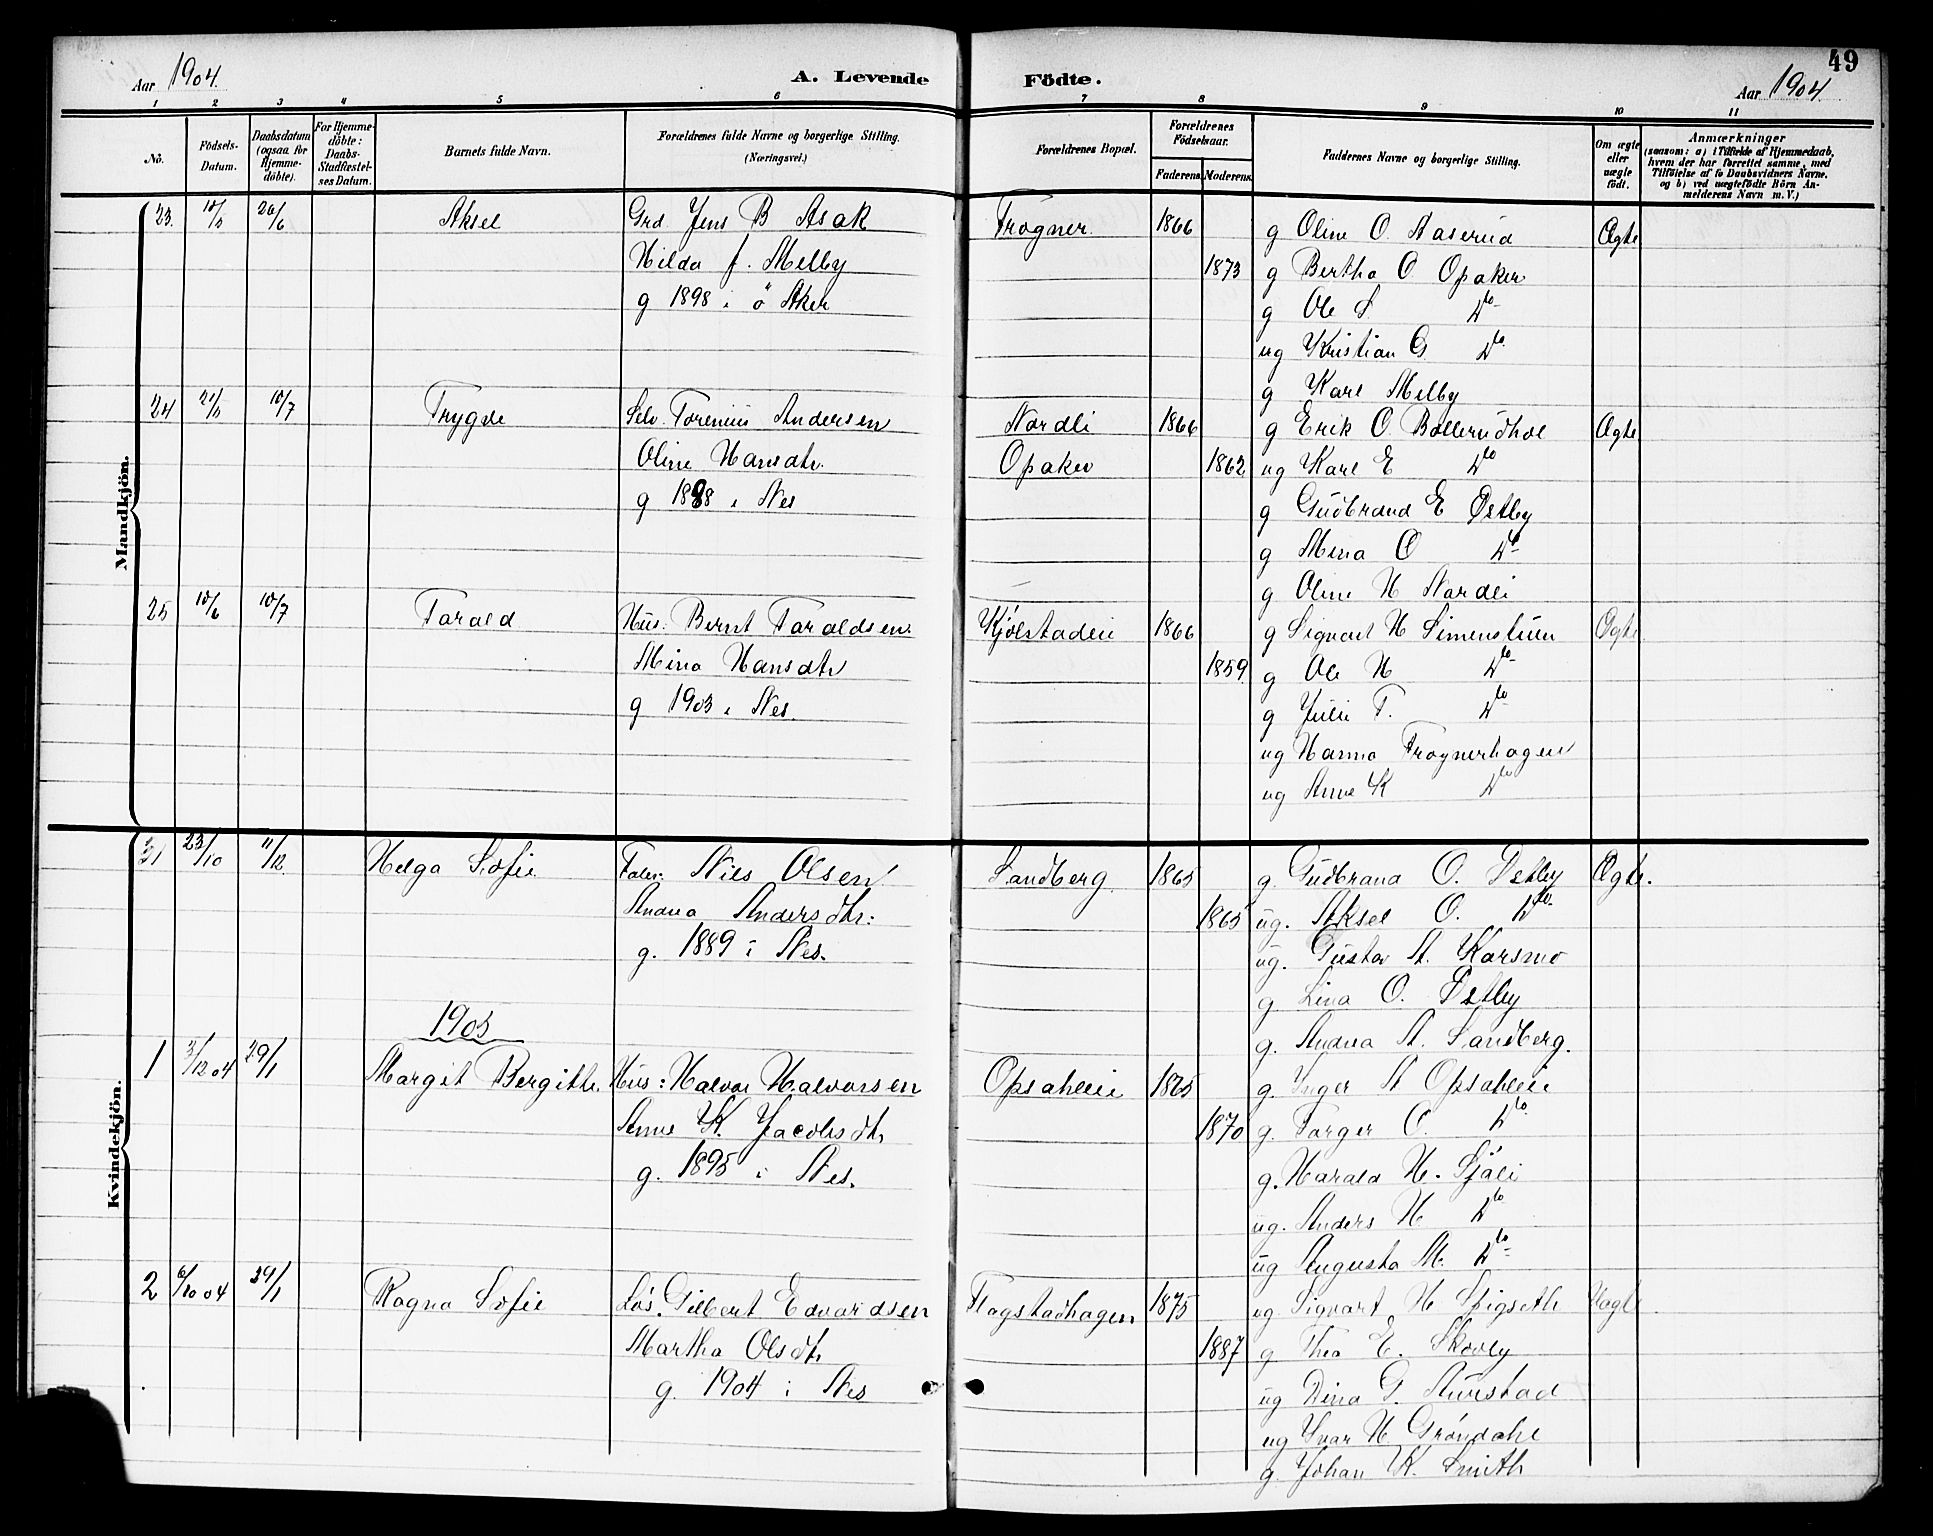 49
Aar 1904.
A. Levende Födte.
Aar 1904
1 2 3 4 5 6 7 8 9 10 11
No.
Födsels-Datum.
Daabsdatum (ogsaa for Hjemmedöbte).
For Hjemmedöbte: Daabs-Stadfæstelses Datum.
Barnets fulde Navn.
Forældrenes fulde Navne og borgerlige Stilling.
(Næringsvei.)
Forældrenes Bopæl.
Forældrenes Födselsaar.
Faderens. Moderens.
Faddernes Navne og borgerlige Stilling.
Om ægte eller uægte født.
Anmærkninger
(saasom: a) i Tilfælde af Hjemmedaab, hvem der har forrettet samme, med Tilföielse af to Daabsvidners Navne, og b) ved uægtefödte Börn Anmelderens Navn m. V.)
Mandkjön.
23. 10/5 26/6 Aksel Grd. Jens B Asak Frogner. 1866 g Oline O. Aaserud Ægte
Hilda J. Melby 1873 g Bertha O Opaker
g 1898 i ö Aker g Ole S Do
ug Kristian G. Do
g Karl Melby
24 21/5 10/7 Trygve Selv. Torenius Andersen Nordli 1866 g Erik O. Bollerudhol Ægte
Oline Hansdtr. Opaker 1862 ug Karl E Do
g 1888 i Nes g Gudbrand E Østby
g Mina O Do
g Oline H Nordli
25 10/6 10/7 Tarald Hus: Bernt Taraldsen Kjölstadeie 1866 g Sigvart H Simenstuen Ægte
Mina Hansdtr 1859 g Ole H Do
g 1903 i Nes. g Julie T. Do
ug Hanna Frognerhagen
ug Anne K Do
Kvindekjön.
31 23/10 11/12 Helga Sofie Nils Olsen Sandberg 1865 g. Gudbrand O. Østby Ægte.
Andrea Andersdtr: 1865 ug. Aksel O. Do
g. 1889 i Nes. ug. Gustav A. Karsmo
g Lina O. Østby
1905
g. Andrea A. Sandberg.
1 3/12 04 29/1 Margit Bergitte. Hus: Halvor Halvorsen Opsaheie 1865 g. Inger A Opsaheie
Anne K. Jacobsdtr 1870 g. Torger O. Do
g. 1895 i Nes. g. Harald H. Sjöli
ug. Anders H Do
ug Augusta M. Do
2 6/10 04 29/1 Ragna Sofie Lös. Gilbert Edvardsen Flagstadhagen 1875 ug Sigvart H Spigseth Uægte.
Martha Olsdtr 1887 g. Thea E. Skovly
g. 1904 i Nes ug Dina G. Aurstad
ug Ivar H Gröndahl
g. Johan K. Smith